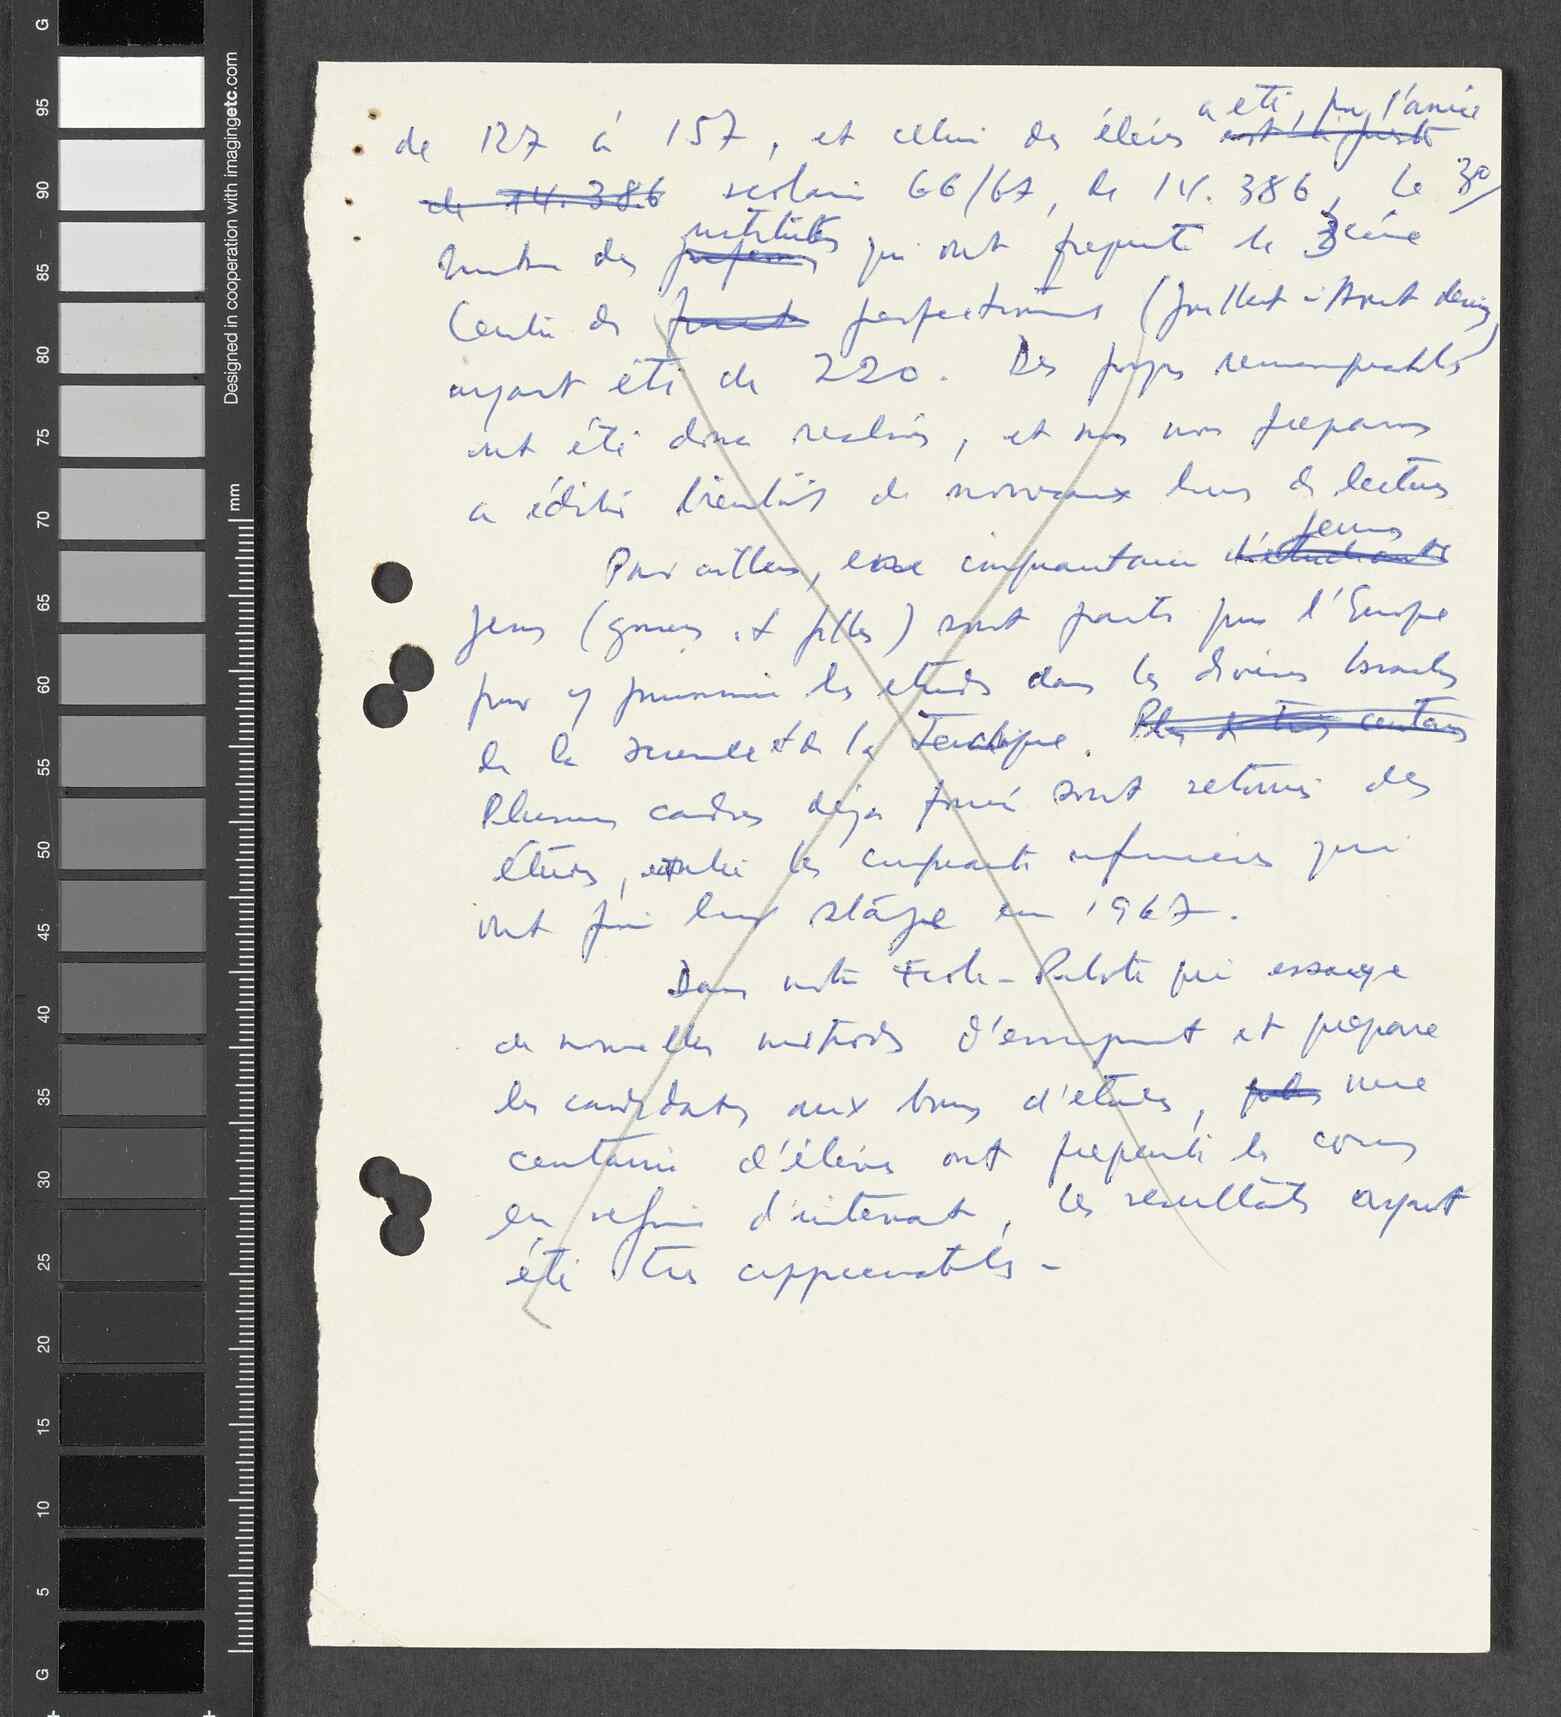 a été, pour l'année
de 127 à 157, et celui des élèves est à juste
de 14.386 scolaire 66/67, de 14.386, Le 30/
instituteurs
nombre des qui ont fréquenté le 3ème
Centre de perfectionnement (Juillet - Août dernier)
ayant été de 220. Des progrès remarquables
ont été donc réalisés, et nous nous préparons
a éditer bientôt de nouveaux livres de lecture
jeunes
Par ailleurs, une cinquantaine d'étudiants
jeunes (garçons et filles) sont partis pour l'Europe
pour y poursuivre les études dans les diverses branches
de la science et de la Technique. Plus de trois centaines
Plusieurs cadres déja formés sont retournés des
études, entre les cinquante infirmiers qui
ont fini leur stage en 1967.
Dans notre Ecole-Pilote qui essaye
de nouvelles méthodes d'enseignement et prépare
les candidats aux bourses d'études, plus une
centaine d'élèves ont fréquenté les cours
en régime d'internat, les résultats ayant
été très appréciables -
Designed in cooperation with imagingetc.com
mm
G
95
90
85
80
75
70
65
60
55
50
45
40
35
30
25
20
15
10
5
G